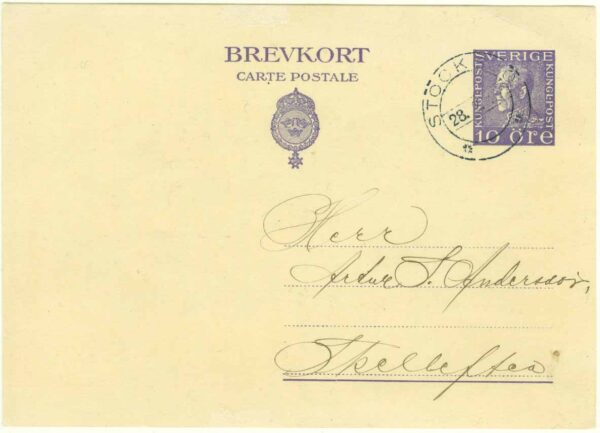 BREVKORT
CARTE POSTALE
SVERIGE
KUNGL·POST
KUNGL·POST
10 öre
STOCK
28.
Herr
Artur S. Andersson,
Skellefteå